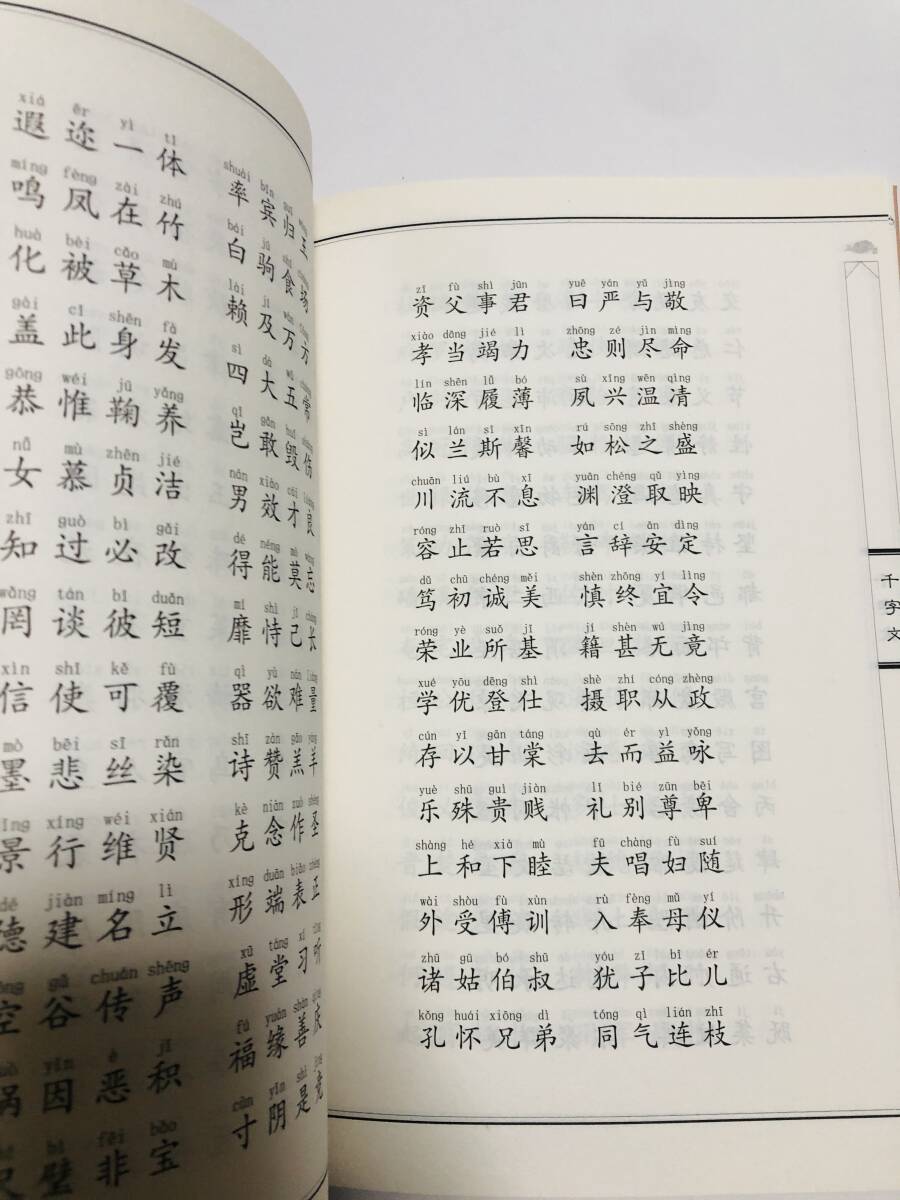 xiá ěr yì tǐ shuài bīn guī
遐迩一体 率宾归王
míng fèng zài zhú bái jū shí
鸣凤在竹 白驹食场
huà bèi cǎo mù lài jí wàn
化被草木 赖及万方
gài cǐ shēn fà sì dà wǔ
盖此身发 四大五常
gōng wéi jū yǎng qǐ gǎn huǐ
恭惟鞠养 岂敢毁伤
nǚ mù zhēn jié nán xiào cái
女慕贞洁 男效才良
zhī guò bì gǎi dé néng mò
知过必改 得能莫忘
wǎng tán bǐ duǎn mǐ shì jǐ
罔谈彼短 靡恃己长
xìn shǐ kě fù qì yù nán
信使可覆 器欲难量
mò bēi sī rǎn shī zàn gāo
墨悲丝染 诗赞羔羊
xíng wéi xián kè niàn zuò
景行维贤 克念作圣
jiàn míng lì xíng duān biǎo
德建名立 形端表正
gǔ chuán shēng xū táng xí
空谷传声 虚堂习听
yīn è jī fú yuán shàn
祸因恶积 福缘善庆
bì fēi bǎo cùn yīn shì
尺璧非宝 寸阴是竞
zī fù shì jūn yuē yán yǔ jìng
资父事君 曰严与敬
xiào dāng jié lì zhōng zé jìn mìng
孝当竭力 忠则尽命
lín shēn lǚ bó sù xīng wēn qìng
临深履薄 夙兴温清
sì lán sī xīn rú sōng zhī shèng
似兰斯馨 如松之盛
chuān liú bù xī yuān chéng qǔ yìng
川流不息 渊澄取映
róng zhǐ ruò sī yán cí ān dìng
容止若思 言辞安定
dǔ chū chéng měi shèn zhōng yí lìng
笃初诚美 慎终宜令
róng yè suǒ jī jí shèn wú jìng
荣业所基 籍甚无竟
xué yōu dēng shì shè zhí cóng zhèng
学优登仕 摄职从政
cún yǐ gān táng qù ér yì yǒng
存以甘棠 去而益咏
yuè shū guì jiàn lǐ bié zūn bēi
乐殊贵贱 礼别尊卑
shàng hé xià mù fū chàng fù suí
上和下睦 夫唱妇随
wài shòu fù xùn rù fèng mǔ yí
外受傅训 入奉母仪
zhū gū bó shū yóu zǐ bǐ ér
诸姑伯叔 犹子比儿
kǒng huái xiōng dì tóng qì lián zhī
孔怀兄弟 同气连枝
千字文